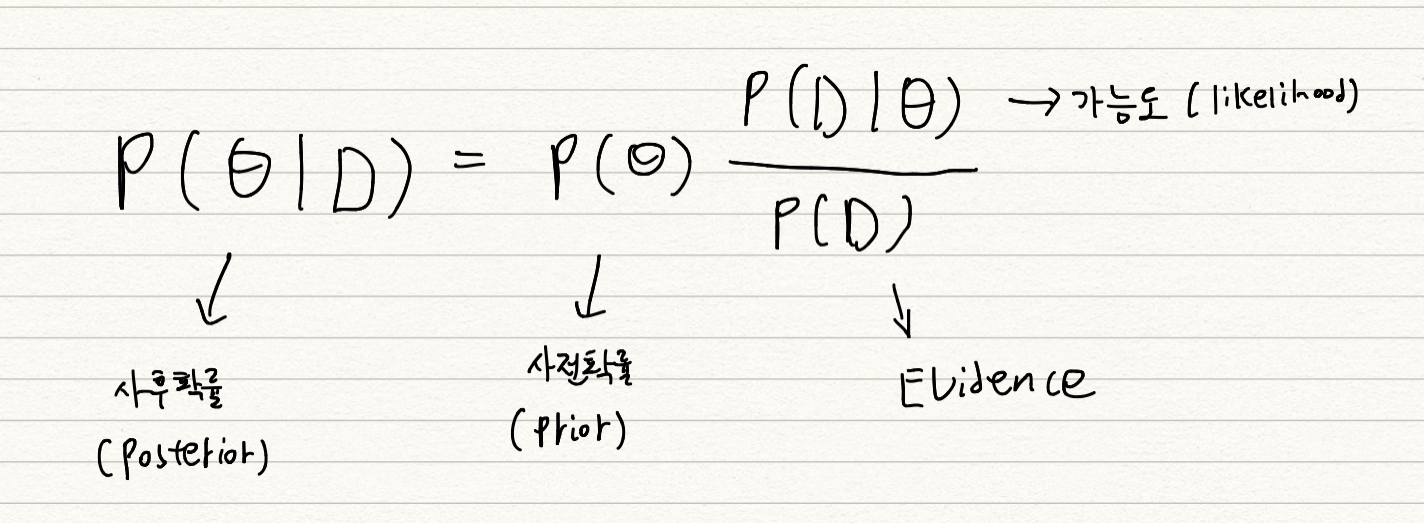 P(θ|D) = P(θ) P(D|θ) / P(D)
→ 가능도 (likelihood)
사후확률
(posterior)
사전확률
(prior)
Evidence